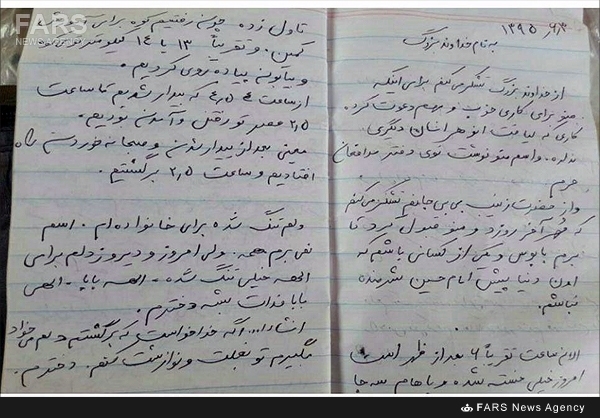 FARS
NEWS AGENCY
۱۳۹۵/۶/۳
به نام خداوند بزرگ
از خداوند بزرگ تشکر می کنم برای اینکه
منو برای کاری خوب و مهم دعوت کرده
کاری که لیاقت انو هر انسان دیگری
نداره. و اسم منو نوشت توی دفتر مدافعان
حرم.
و از حضرت زینب بی بی جانم تشکر می کنم
که آخر روزد و منو قبول کرد تا
برم پابوس و یکی از کسانی باشم که
اون دنیا پیش امام حسین شرمنده
نباشم.
الان ساعت تقریباً ۶ بعد از ظهر است
امروز خیلی خسته شده و پاهام سه جا
تاول زده رفتیم کوه برای
کمین. و تقریباً ۱۳ یا ۱۴ کیلومتر
پیاده روی کردیم.
از ساعت ۴٫۵ که بیدار شدیم تا ساعت
۲٫۵ عصر تو رفتن و آمدن بودیم.
یعنی بعد از بیدار شدن و صبحانه خوردن راه
افتادیم و ساعت ۲٫۵ برگشتیم.
دلم تنگ شده برای خانواده ام. اسم
نمی برم همه. ولی امروز و دیروز دلم برای
الهه خیلی تنگ شده. الهه بابا. الهی
بابا فدات بشه دخترم.
انشاالله اگه خدا خواست که برگشتم دلم می خواد
بگیرم تو بغلت و نوازشت کنم. دخترم.
FARS News Agency